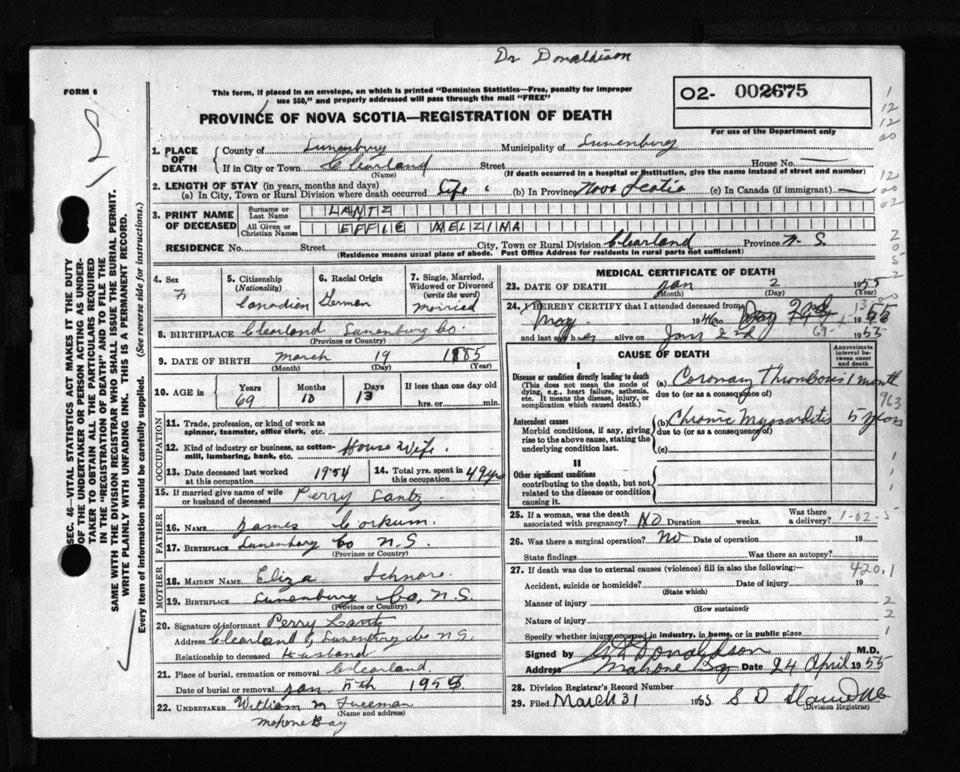 Dr Donaldison
FORM 6
This form, if placed in an envelope, on which is printed "Dominion Statistics—Free, penalty for improper
use $50," and properly addressed will pass through the mail "FREE"
02- 002675
PROVINCE OF NOVA SCOTIA—REGISTRATION OF DEATH
For use of the Department only
1. PLACE OF DEATH County of Lunenburg Municipality of Lunenburg
If in City or Town Clearland Street House No.
(Name) (If death occurred in a hospital or institution, give the name instead of street and number)
2. LENGTH OF STAY (in years, months and days)
(a) In City, Town or Rural Division where death occurred Life (b) In Province Nova Scotia (c) In Canada (if immigrant)
3. PRINT NAME OF DECEASED Surname or Last Name LANTZ
All Given or Christian Names EFFIE MELZINA
RESIDENCE No. Street City, Town or Rural Division Clearland Province N. S.
(Residence means usual place of abode. Post Office Address for residents in rural parts not sufficient)
4. Sex F
5. Citizenship (Nationality) Canadian
6. Racial Origin German
7. Single, Married, Widowed or Divorced (write the word) Married
8. BIRTHPLACE Clearland Lunenburg Co.
(Province or Country)
9. DATE OF BIRTH March 19 1885
(Month) (Day) (Year)
10. AGE in Years 69 Months 10 Days 13 If less than one day old
hrs. or min.
OCCUPATION
11. Trade, profession, or kind of work as spinner, teamster, office clerk, etc.
12. Kind of industry or business, as cotton-mill, lumbering, bank, etc. House Wife.
13. Date deceased last worked at this occupation 1954 14. Total yrs. spent in this occupation 49 yrs
15. If married give name of wife or husband of deceased Perry Lantz
FATHER
16. NAME James Corkum.
17. BIRTHPLACE Lunenburg Co N.S.
(Province or Country)
MOTHER
18. MAIDEN NAME Eliza Schnare.
19. BIRTHPLACE Lunenburg Co, N.S.
(Province or Country)
20. Signature of informant Perry Lantz
Address Clearland, Lunenburg Co N.S.
Relationship to deceased Husband
21. Place of burial, cremation or removal Clearland.
Date of burial or removal Jan. 195
22. UNDERTAKER William M Freeman
(Name and address)
Mahone Bay
MEDICAL CERTIFICATE OF DEATH
23. DATE OF DEATH Jan 2 1955
(Month) (Day) (Year)
24. I HEREBY CERTIFY that I attended deceased from
May 1946 to 2nd 1955
and last saw h alive on Jan 2nd 1955
CAUSE OF DEATH
Approximate interval between onset and death
I
Disease or condition directly leading to death (This does not mean the mode of dying, e.g., heart failure, asthenia, etc. It means the disease, injury, or complication which caused death.)
(a) Coronary Thrombosis 1 month
due to (or as a consequence of)
Antecedent causes
Morbid conditions, if any, giving rise to the above cause, stating the underlying condition last.
(b) Chronic Myocarditis 5 years
due to (or as a consequence of)
(c)
II
Other significant conditions contributing to the death, but not related to the disease or condition causing it.
25. If a woman, was the death associated with pregnancy? NO Duration weeks. Was there a delivery?
26. Was there a surgical operation? NO Date of operation 19
State findings Was there an autopsy?
27. If death was due to external causes (violence) fill in also the following:— 420.1
Accident, suicide or homicide? Date of injury 19
(State which)
Manner of injury
(How sustained)
Nature of injury
Specify whether injury occurred in industry, in home, or in public place
Signed by Donaldson M.D.
Address Mahone Bay Date 24 April 1955
28. Division Registrar's Record Number
29. Filed March 31 1955 S D
(Division Registrar)
SEC. 46—VITAL STATISTICS ACT MAKES IT THE DUTY
OF THE UNDERTAKER OR PERSON ACTING AS UNDER-
TAKER TO OBTAIN ALL THE PARTICULARS REQUIRED
IN THE "REGISTRATION OF DEATH" AND TO FILE THE
SAME WITH THE DIVISION REGISTRAR WHO SHALL ISSUE THE BURIAL PERMIT.
WRITE PLAINLY WITH UNFADING INK. THIS IS A PERMANENT RECORD.
Every item of information should be carefully supplied. (See reverse side for instructions.)